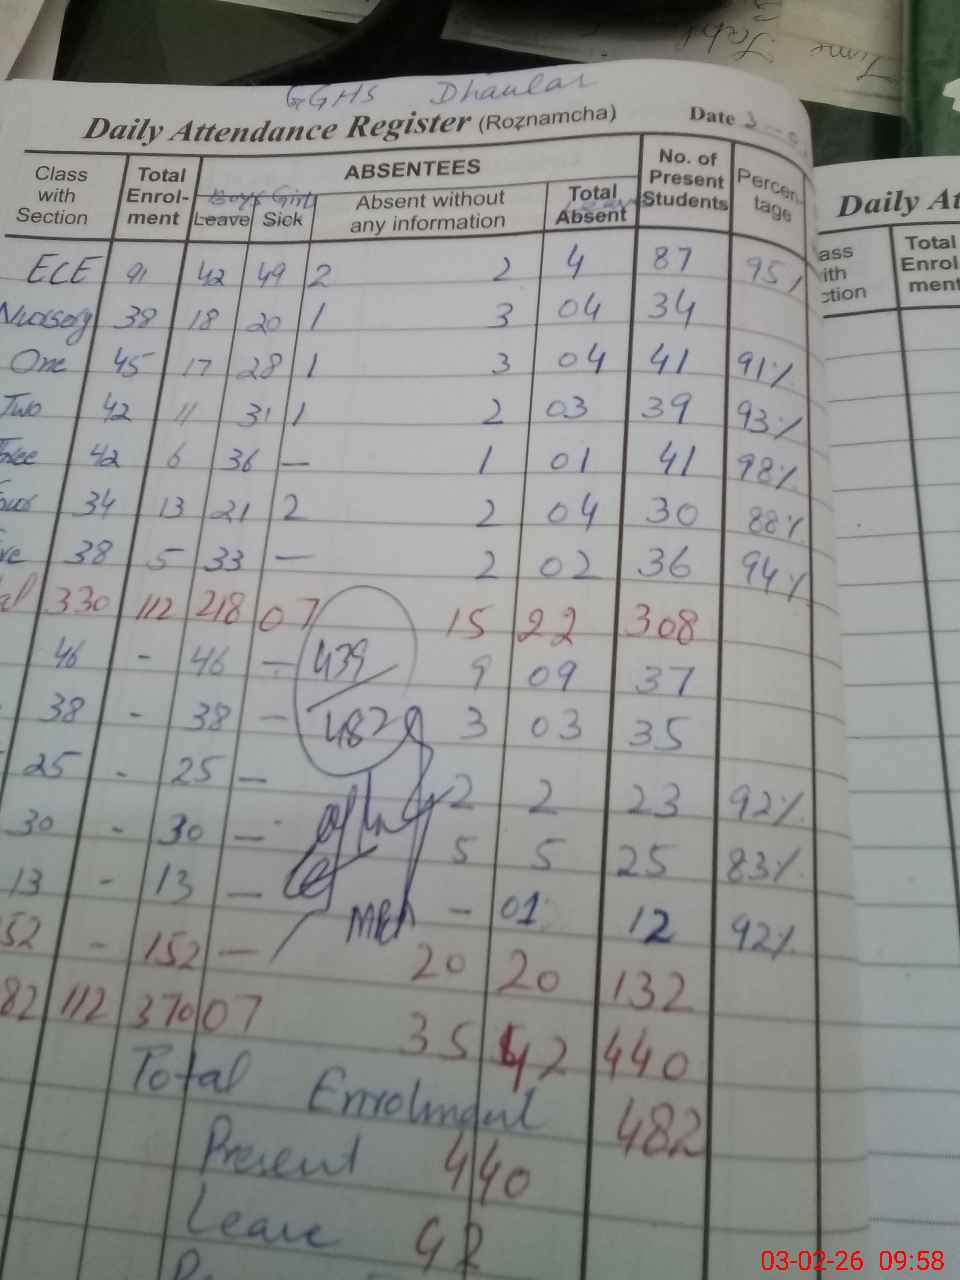 Time Table
GGHS Dhaular
Daily Attendance Register (Roznamcha) Date 3-
Class with Section Total Enrol-ment ABSENTEES No. of Present Students Percen tage
Boys Girls
Leave Sick Absent without any information Total Absent
ECE 91 42 49 2 2 4 87 95%
Nursery 38 18 20 1 3 04 34
One 45 17 28 1 3 04 41 91%
Two 42 11 31 1 2 03 39 93%
42 6 36 — 1 01 41 98%
34 13 21 2 2 04 30 88%
38 5 33 — 2 02 36 94%
330 112 218 07 15 22 308
46 - 46 — 439 9 09 37
38 - 38 — 482 3 03 35
25 - 25 — 2 2 23 92%
30 - 30 — 5 5 25 83%
13 - 13 — - 01 12 92%
52 - 152 — 20 20 132
82 112 370 07 35 42 440
Total Enrolment 482
Present 440
Leave 42
Daily At
ass ith ction Total Enrol ment
03-02-26 09:58